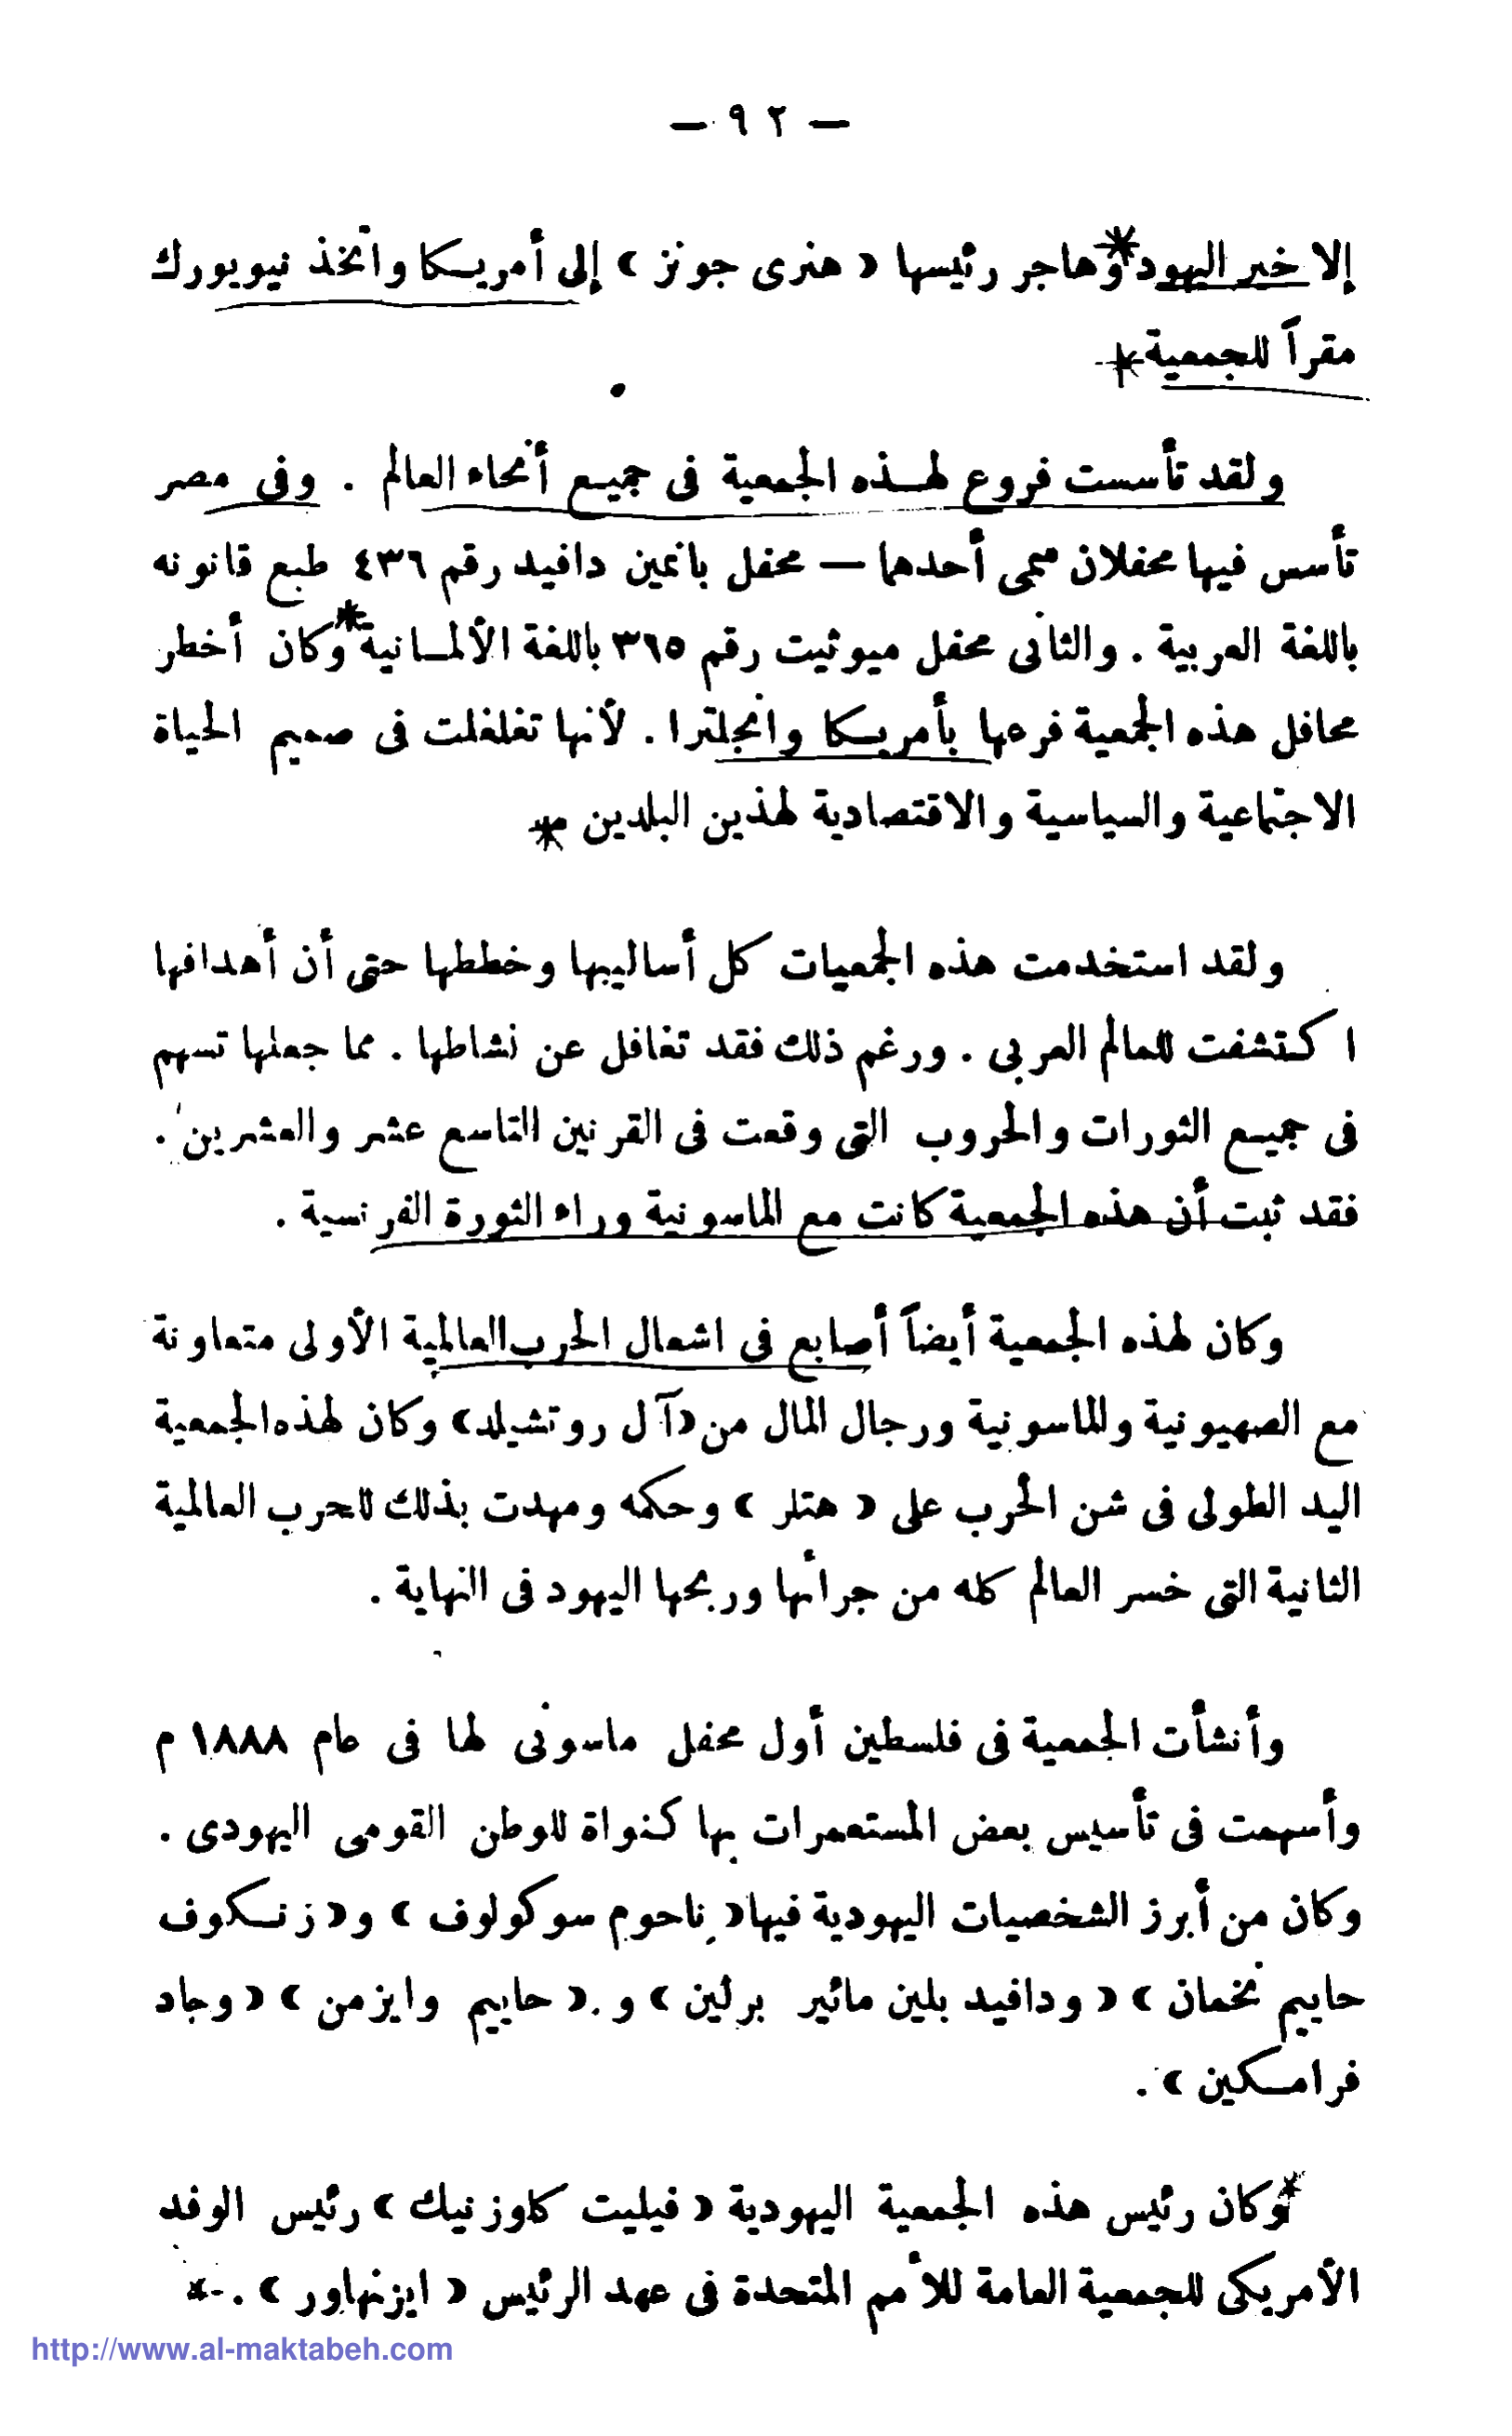 — ٩٢ —
إلا خير اليهود * وهاجر رئيسها « هنرى جونز » إلى أمريكا واتخذ نيويورك
مقراً للجمعية *
ولقد تأسست فروع لهذه الجمعية فى جميع أنحاء العالم . وفى مصر
تأسس فيها محفلان سمى أحدهما — محفل بانمين دافيد رقم ٤٣٦ طبع قانونه
باللغة العربية . والثانى محفل ميوثيت رقم ٣٦٥ باللغة الألمانية * وكان أخطر
محافل هذه الجمعية فرعها بأمريكا وانجلترا . لأنها تغلغلت فى صميم الحياة
الاجتماعية والسياسية والاقتصادية لهذين البلدين *
ولقد استخدمت هذه الجمعيات كل أساليبها وخططها حتى أن أهدافها
اكتشفت للعالم العربى . ورغم ذلك فقد تغافل عن نشاطها . مما جعلها تسهم
فى جميع الثورات والحروب التى وقعت فى القرنين التاسع عشر والعشرين .
فقد ثبت أن هذه الجمعية كانت مع الماسونية وراء الثورة الفرنسية .
وكان لهذه الجمعية أيضاً أصابع فى اشعال الحرب العالمية الأولى متعاونة
مع الصهيونية والماسونية ورجال المال من «آل روتشيلد» وكان لهذه الجمعية
اليد الطولى فى شن الحرب على « هتلر » وحكمه ومهدت بذلك للحرب العالمية
الثانية التى خسر العالم كله من جرائها وربحها اليهود فى النهاية .
وأنشأت الجمعية فى فلسطين أول محفل ماسونى لها فى عام ١٨٨٨ م
وأسهمت فى تأسيس بعض المستعمرات بها كنواة للوطن القومى اليهودى .
وكان من أبرز الشخصيات اليهودية فيها « ناحوم سوكولوف » و« زنكوف
حاييم نخمان » « ودافيد بلين مائير برلين » و « حاييم وايزمن » « وجاد
فرامكين » .
* وكان رئيس هذه الجمعية اليهودية « فيليت كاوزنيك » رئيس الوفد
الأمريكى للجمعية العامة للأمم المتحدة فى عهد الرئيس « ايزنهاور » . *
http://www.al-maktabeh.com